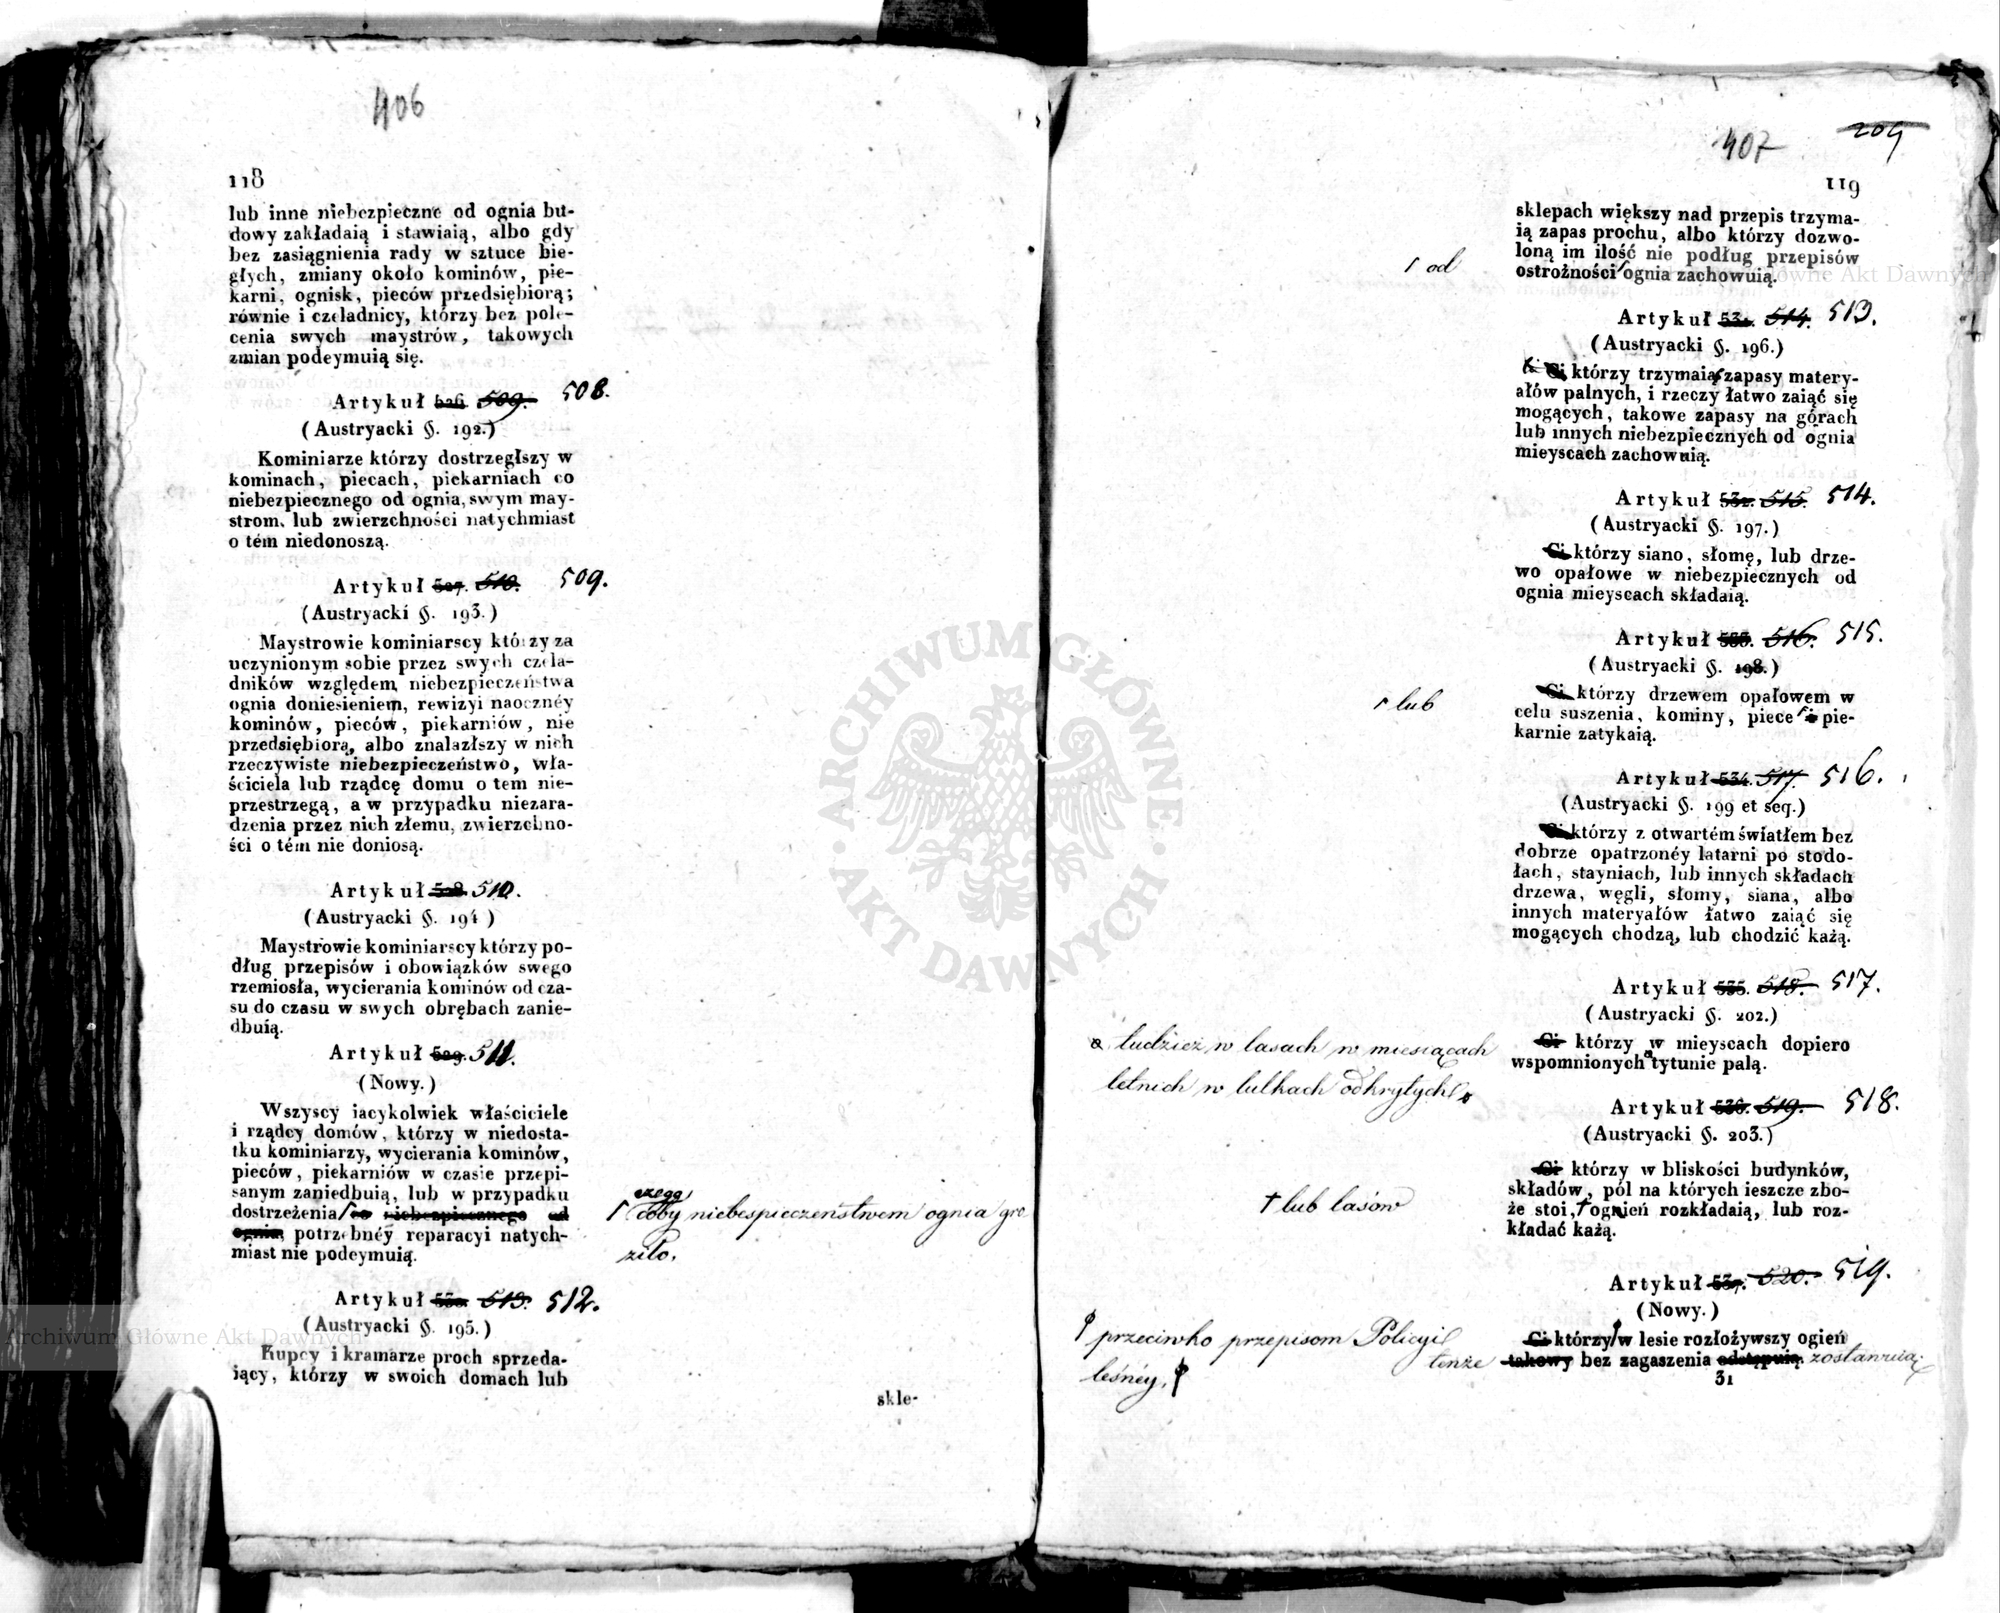 406
118
lub inne niebezpieczne od ognia bu-
dowy zakładaią i stawiaią, albo gdy
bez zasiągnienia rady w sztuce bie-
głych, zmiany około kominów, pie-
karni, ognisk, pieców przedsiębiorą;
równie i czeladnicy, którzy bez pole-
cenia swych maystrów, takowych
zmian podeymuią się.
Artykuł 526. 509. 508.
(Austryacki §. 192.)
Kominiarze którzy dostrzegłszy w
kominach, piecach, piekarniach co
niebezpiecznego od ognia, swym may-
strom, lub zwierzchności natychmiast
o tém niedonoszą.
Artykuł 527. 510. 509.
(Austryacki §. 193.)
Maystrowie kominiarscy którzy za
uczynionym sobie przez swych czela-
dników względem niebezpieczeństwa
ognia doniesieniem, rewizyi naocznéy
kominów, pieców, piekarniów, nie
przedsiębiorą, albo znalazłszy w nich
rzeczywiste niebezpieczeństwo, wła-
ściciela lub rządcę domu o tem nie-
przestrzegą, a w przypadku niezara-
dzenia przez nich złemu, zwierzchno-
ści o tém nie doniosą.
Artykuł 528. 510.
(Austryacki §. 194)
Maystrowie kominiarscy którzy po-
dług przepisów i obowiązków swego
rzemiosła, wycierania kominów od cza-
su do czasu w swych obrębach zanie-
dbuią.
Artykuł 529. 511.
(Nowy.)
Wszyscy iacykolwiek właściciele
i rządcy domów, którzy w niedosta-
tku kominiarzy, wycierania kominów,
pieców, piekarniów w czasie przepi-
sanym zaniedbuią, lub w przypadku
dostrzeżenia co niebezpiecznego od
ognia, potrzebnéy reparacyi natych-
miast nie podeymuią.
czego
coby niebespieczeństwem ognia gro
ziło.
Artykuł 530. 513. 512.
(Austryacki §. 195.)
Kupcy i kramarze proch sprzeda-
iący, którzy w swoich domach lub
skle-
407 209
119
sklepach większy nad przepis trzyma-
ią zapas prochu, albo którzy dozwo-
loną im ilość nie podług przepisów
ostrożności ognia zachowuią.
od
Artykuł 531. 514. 513.
(Austryacki §. 196.)
Ci którzy trzymaią zapasy matery-
ałów palnych, i rzeczy łatwo zaiąć się
mogących, takowe zapasy na górach
lub innych niebezpiecznych od ognia
mieyscach zachowuią.
Artykuł 532. 515. 514.
(Austryacki §. 197.)
Ci którzy siano, słomę, lub drze-
wo opałowe w niebezpiecznych od
ognia mieyscach składaią.
Artykuł 533. 516. 515.
(Austryacki §. 198.)
Ci którzy drzewem opałowem w
celu suszenia, kominy, piece i pie-
karnie zatykaią.
lub
Artykuł 534. 517. 516.
(Austryacki §. 199 et seq.)
Ci którzy z otwartém światłem bez
dobrze opatrzonéy latarni po stodo-
łach, stayniach, lub innych składach
drzewa, węgli, słomy, siana, albo
innych materyałów łatwo zaiąć się
mogących chodzą, lub chodzić każą.
Artykuł 535. 518. 517.
(Austryacki §. 202.)
Ci którzy w mieyscach dopiero
wspomnionych tytunie palą.
tudzież w lasach w miesiącach
letnich w lulkach odkrytych
Artykuł 536. 519. 518.
(Austryacki §. 203.)
Ci którzy w bliskości budynków,
składów, pól na których ieszcze zbo-
że stoi, † ognień rozkładaią, lub roz-
kładać każą.
† lub lasów
Artykuł 537. 520. 519.
(Nowy.)
Ci którzy w lesie rozłożywszy ogień
takowy bez zagaszenia odstępuią. zostawuią.
przeciwko przepisom Policyi
leśnéy,
tenże
31
ARCHIWUM GŁÓWNE AKT DAWNYCH
Archiwum Główne Akt Dawnych
Główne Akt Dawnych